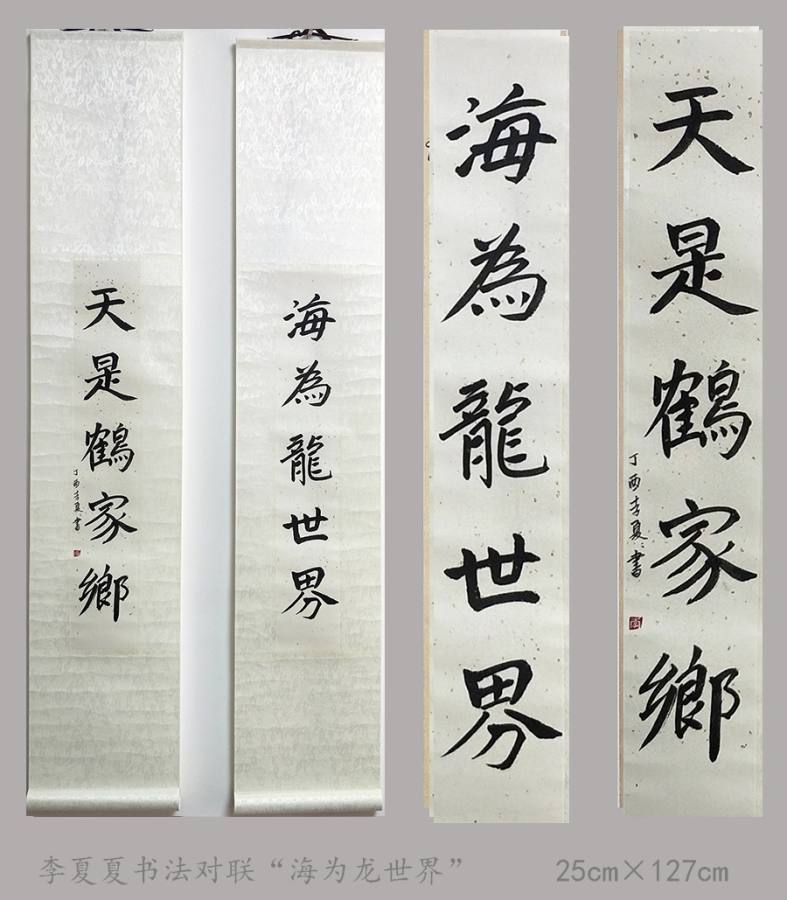 天是鶴家鄉
丁酉李夏夏書
海為龍世界
海為龍世界
天是鶴家鄉
丁酉李夏夏書
李夏夏书法对联“海为龙世界”
25cm×127cm